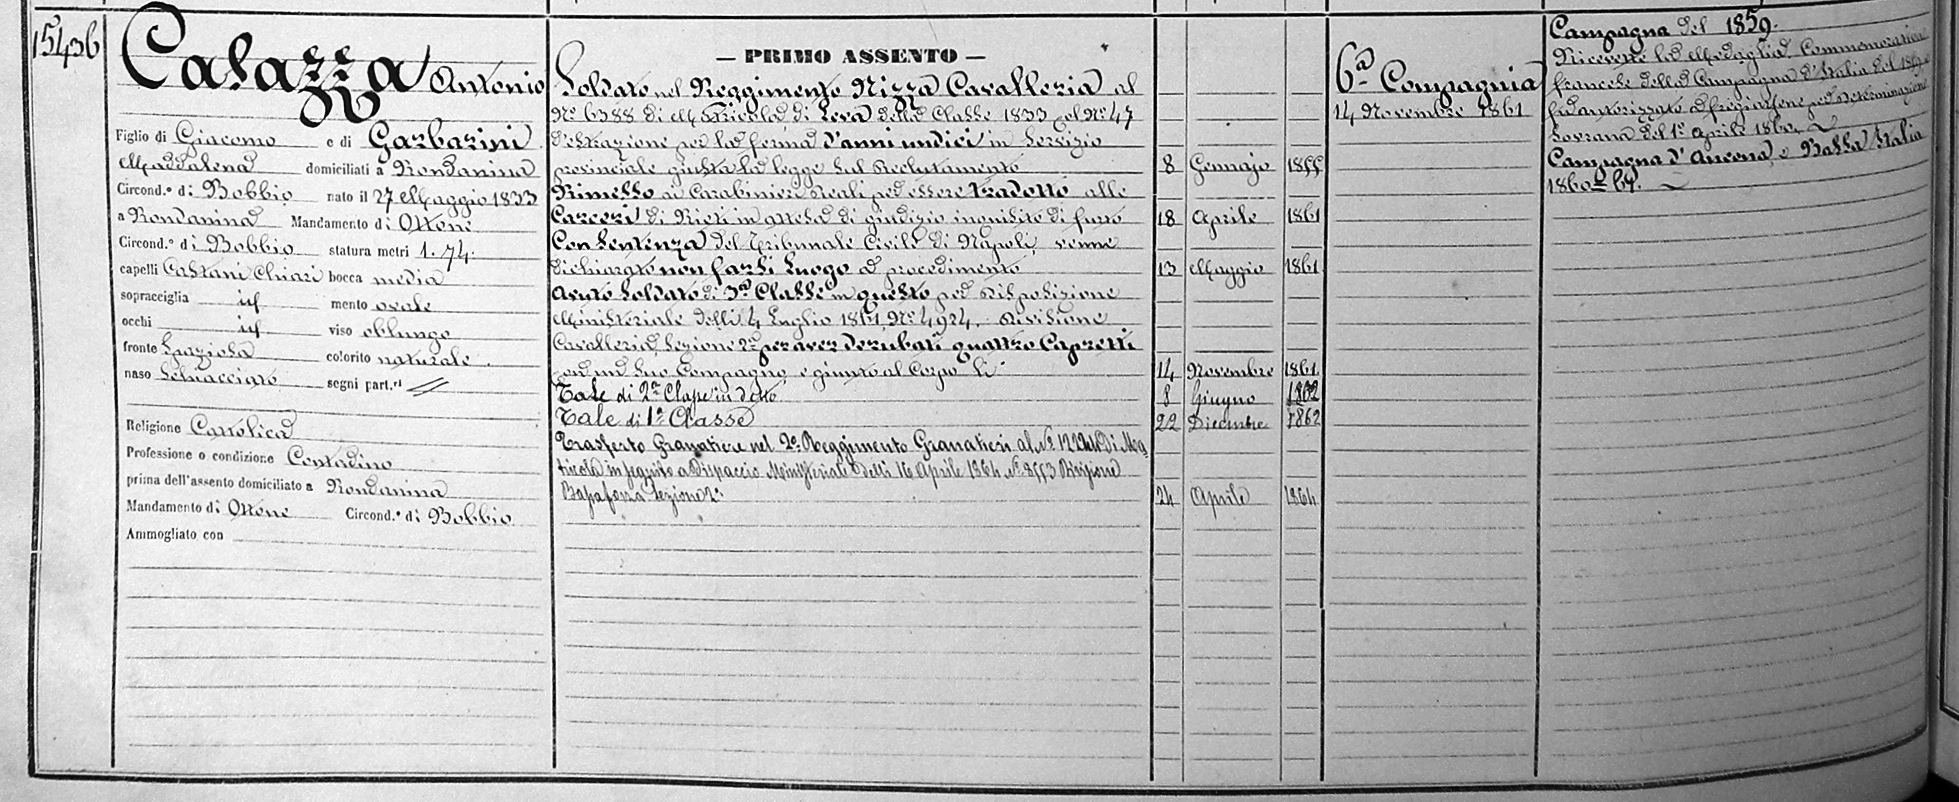 15436
Casazza Antonio
Figlio di Giacomo e di Garbarini
Maddalena domiciliati a Rondanina
Circond.º di Bobbio nato il 27 Maggio 1833
a Rondanina Mandamento di Ottone
Circond.º di Bobbio statura metri 1.74.
capelli Castani Chiari bocca media
sopracciglia id mento ovale
occhi id viso oblungo
fronte Spaziosa colorito naturale.
naso Schiacciato segni part.ri
Religione Cattolica
Professione o condizione Contadino
prima dell'assento domiciliato a Rondanina
Mandamento di Ottone Circond.º di Bobbio
Ammogliato con
— PRIMO ASSENTO —
Soldato nel Reggimento Nizza Cavalleria al
Nº 6388 di Matricola, di Leva della Classe 1833 col Nº 47
d'estrazione per la ferma d'anni undici in Servizio
provinciale giusta la legge sul Reclutamento 8 Gennajo 1855
Rimesso ai Carabinieri Reali per essere tradotto alle
Carceri di Rieti in attesa di giudizio inquisito di furto 18 Aprile 1861
Con Sentenza del Tribunale Civile di Napoli, venne
dichiarato non farsi luogo a procedimento 13 Maggio 1861
Avuto Soldato di 3ª Classe in questo per Disposizione
Ministeriale delli 4 Luglio 1861 Nº 4924. Divisione
Cavalleria, Sezione 2ª per aver derubati quattro Capretti
ad un suo Compagno, e giunto al Corpo li 14 Novembre 1861
Tale di 2ª Classe in detto 8 Giugno 1862
Tale di 1ª Classe 22 Dicembre 1862
Trasferto Granatiere nel 2º Reggimento Granatieri al Nº di Ma
tricola in seguito a Dispaccio Ministeriale delli 16 Aprile 1864 Nº 3553 Divisione
Bassaforza Sezione 2ª 24 Aprile 1864
6ª Compagnia
14 Novembre 1861
Campagna del 1859.
Ricevette la Medaglia Commemorativa
francese della Campagna d'Italia del 1859
fu autorizzato a fregiarsene per Determinazione
Sovrana del 1º Aprile 1860.
Campagna d'Ancona, e Bassa Italia
1860-61.